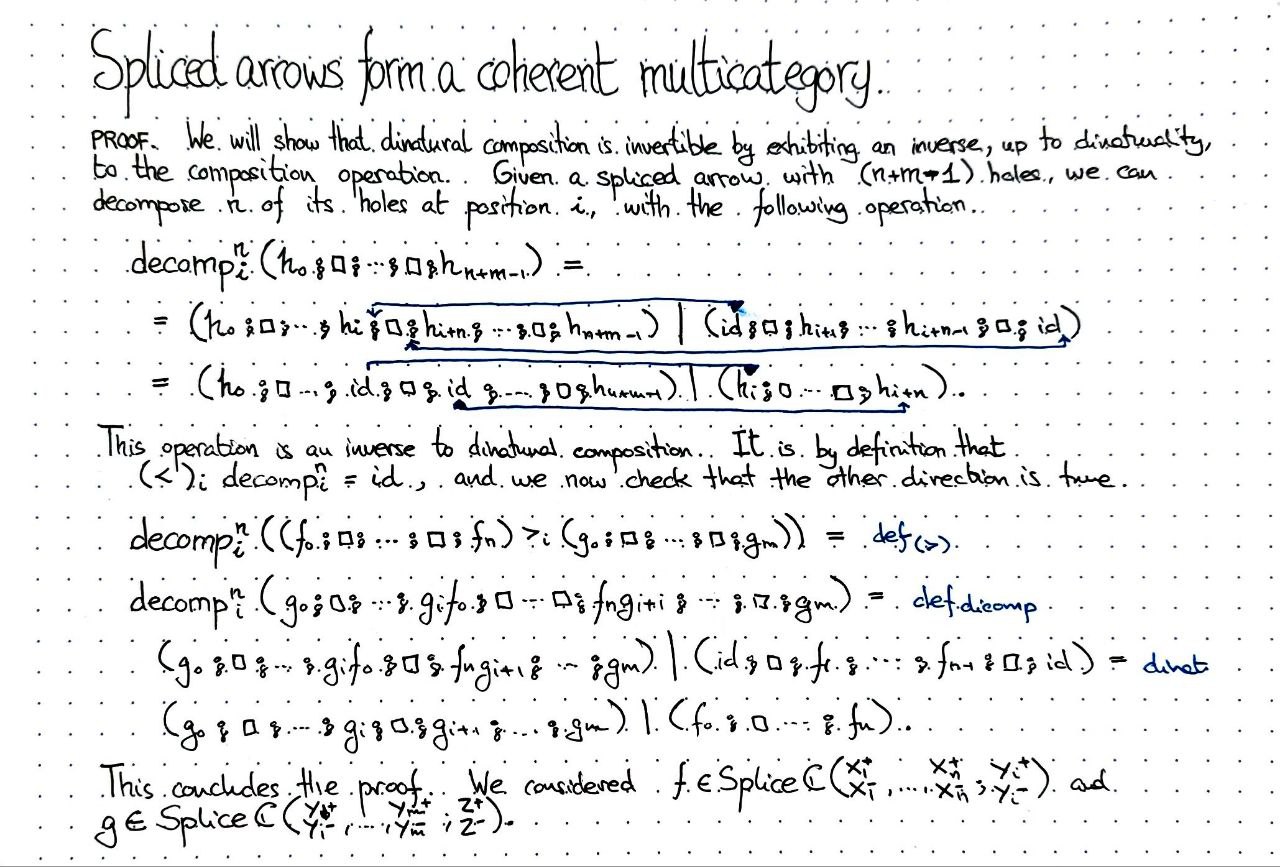 Spliced arrows form a coherent multicategory.
PROOF. We will show that dinatural composition is invertible by exhibiting an inverse, up to dinaturality,
to the composition operation. Given a spliced arrow with (n+m-1) holes, we can
decompose n of its holes at position i, with the following operation.
decompᵢⁿ (h₀ ⨾ □ ⨾ ··· ⨾ □ ⨾ hₙ₊ₘ₋₁) =
= (h₀ ⨾ □ ⨾ ··· ⨾ hᵢ ⨾ □ ⨾ hᵢ₊ₙ ⨾ ··· ⨾ □ ⨾ hₙ₊ₘ₋₁) | (id ⨾ □ ⨾ hᵢ₊₁ ⨾ ··· ⨾ hᵢ₊ₙ₋₁ ⨾ □ ⨾ id)
= (h₀ ⨾ □ ... ⨾ id ⨾ □ ⨾ id ⨾ ... ⨾ □ ⨾ hₙ₊ₘ₋₁) | (hᵢ ⨾ □ ··· □ ⨾ hᵢ₊ₙ).
This operation is an inverse to dinatural composition. It is by definition that
(<)ᵢ decompᵢⁿ = id, and we now check that the other direction is true.
decompᵢⁿ ((f₀ ⨾ □ ⨾ ··· ⨾ □ ⨾ fₙ) >ᵢ (g₀ ⨾ □ ⨾ ··· ⨾ □ ⨾ gₘ)) = def(>)
decompᵢⁿ (g₀ ⨾ □ ⨾ ··· ⨾ gᵢf₀ ⨾ □ ··· □ ⨾ fₙgᵢ₊₁ ⨾ ··· ⨾ □ ⨾ gₘ) = def.dicomp
(g₀ ⨾ □ ⨾ ··· ⨾ gᵢf₀ ⨾ □ ⨾ fₙgᵢ₊₁ ⨾ ··· ⨾ gₘ) | (id ⨾ □ ⨾ f₁ ⨾ ··· ⨾ fₙ₋₁ ⨾ □ ⨾ id) = dinat
(g₀ ⨾ □ ⨾ ··· ⨾ gᵢ ⨾ □ ⨾ gᵢ₊₁ ⨾ ... ⨾ gₘ) | (f₀ ⨾ □ ··· ⨾ fₙ).
This concludes the proof. We considered f ∈ Splice ℂ (X₁⁺ X₁⁻ , ..., Xₙ⁺ Xₙ⁻ ; Yᵢ⁺ Yᵢ⁻) and
g ∈ Splice ℂ (Y₁⁺ Y₁⁻ , ..., Yₘ⁺ Yₘ⁻ ; Z⁺ Z⁻).